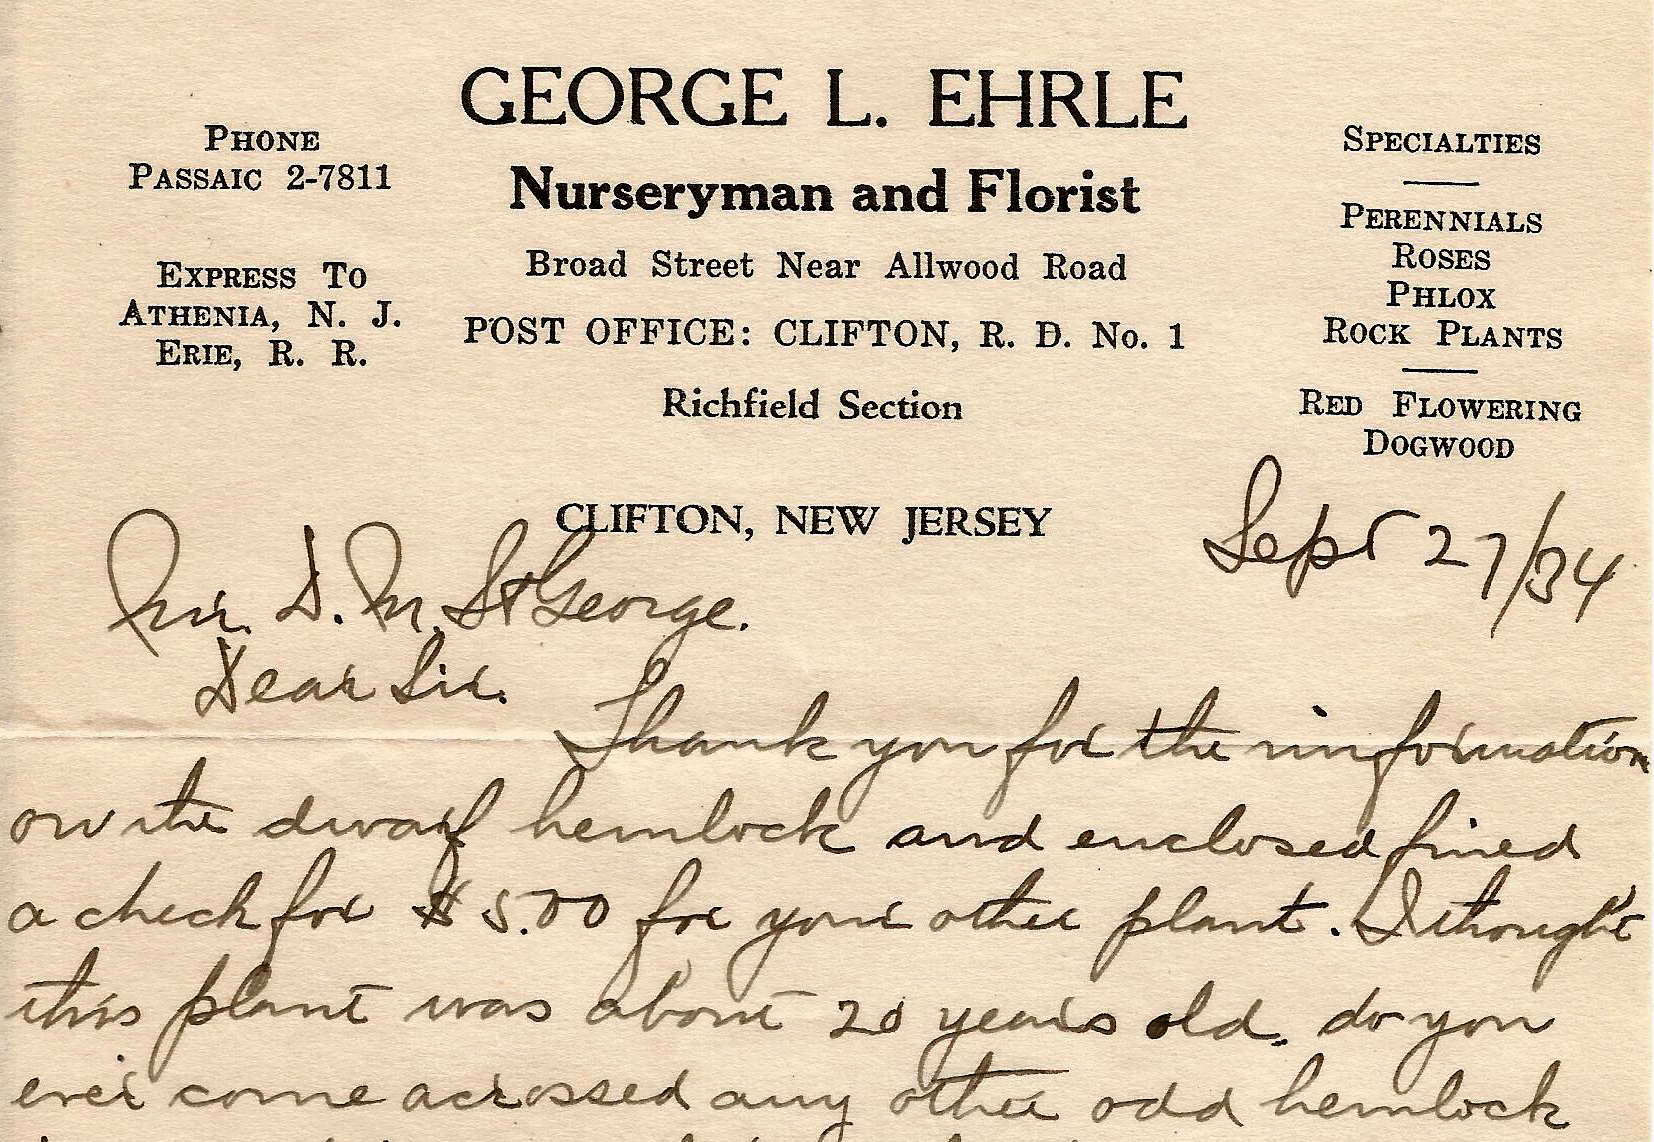 GEORGE L. EHRLE
Nurseryman and Florist
Broad Street Near Allwood Road
POST OFFICE: CLIFTON, R. D. No. 1
Richfield Section
CLIFTON, NEW JERSEY
PHONE
PASSAIC 2-7811
EXPRESS TO
ATHENIA, N. J.
ERIE, R. R.
SPECIALTIES
PERENNIALS
ROSES
PHLOX
ROCK PLANTS
RED FLOWERING
DOGWOOD
Sept 27/34
Mr. D. M. St George.
Dear Sir.
Thank you for the information
on the dwarf hemlock and enclosed fined
a check for $5.00 for your other plant. I thought
this plant was about 20 years old. do you
ever come acrossed any other odd hemlock